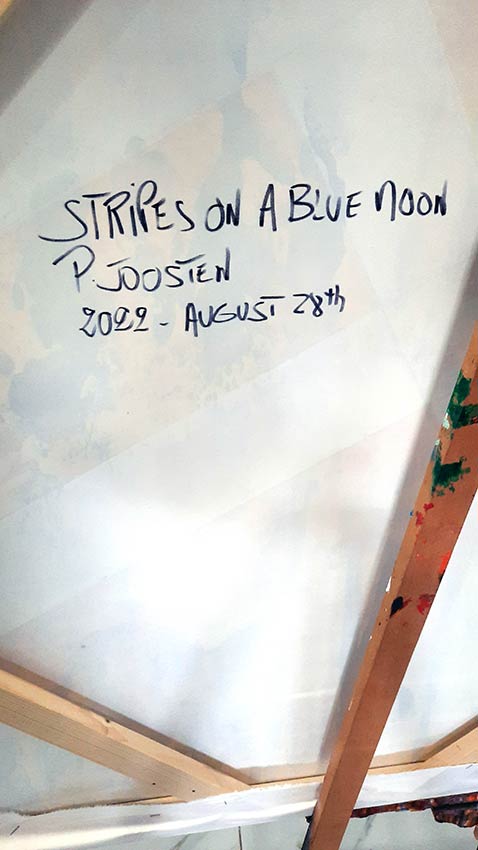 STRIPES ON A BLUE MOON
P. JOOSTEN
2022 - AUGUST 28th